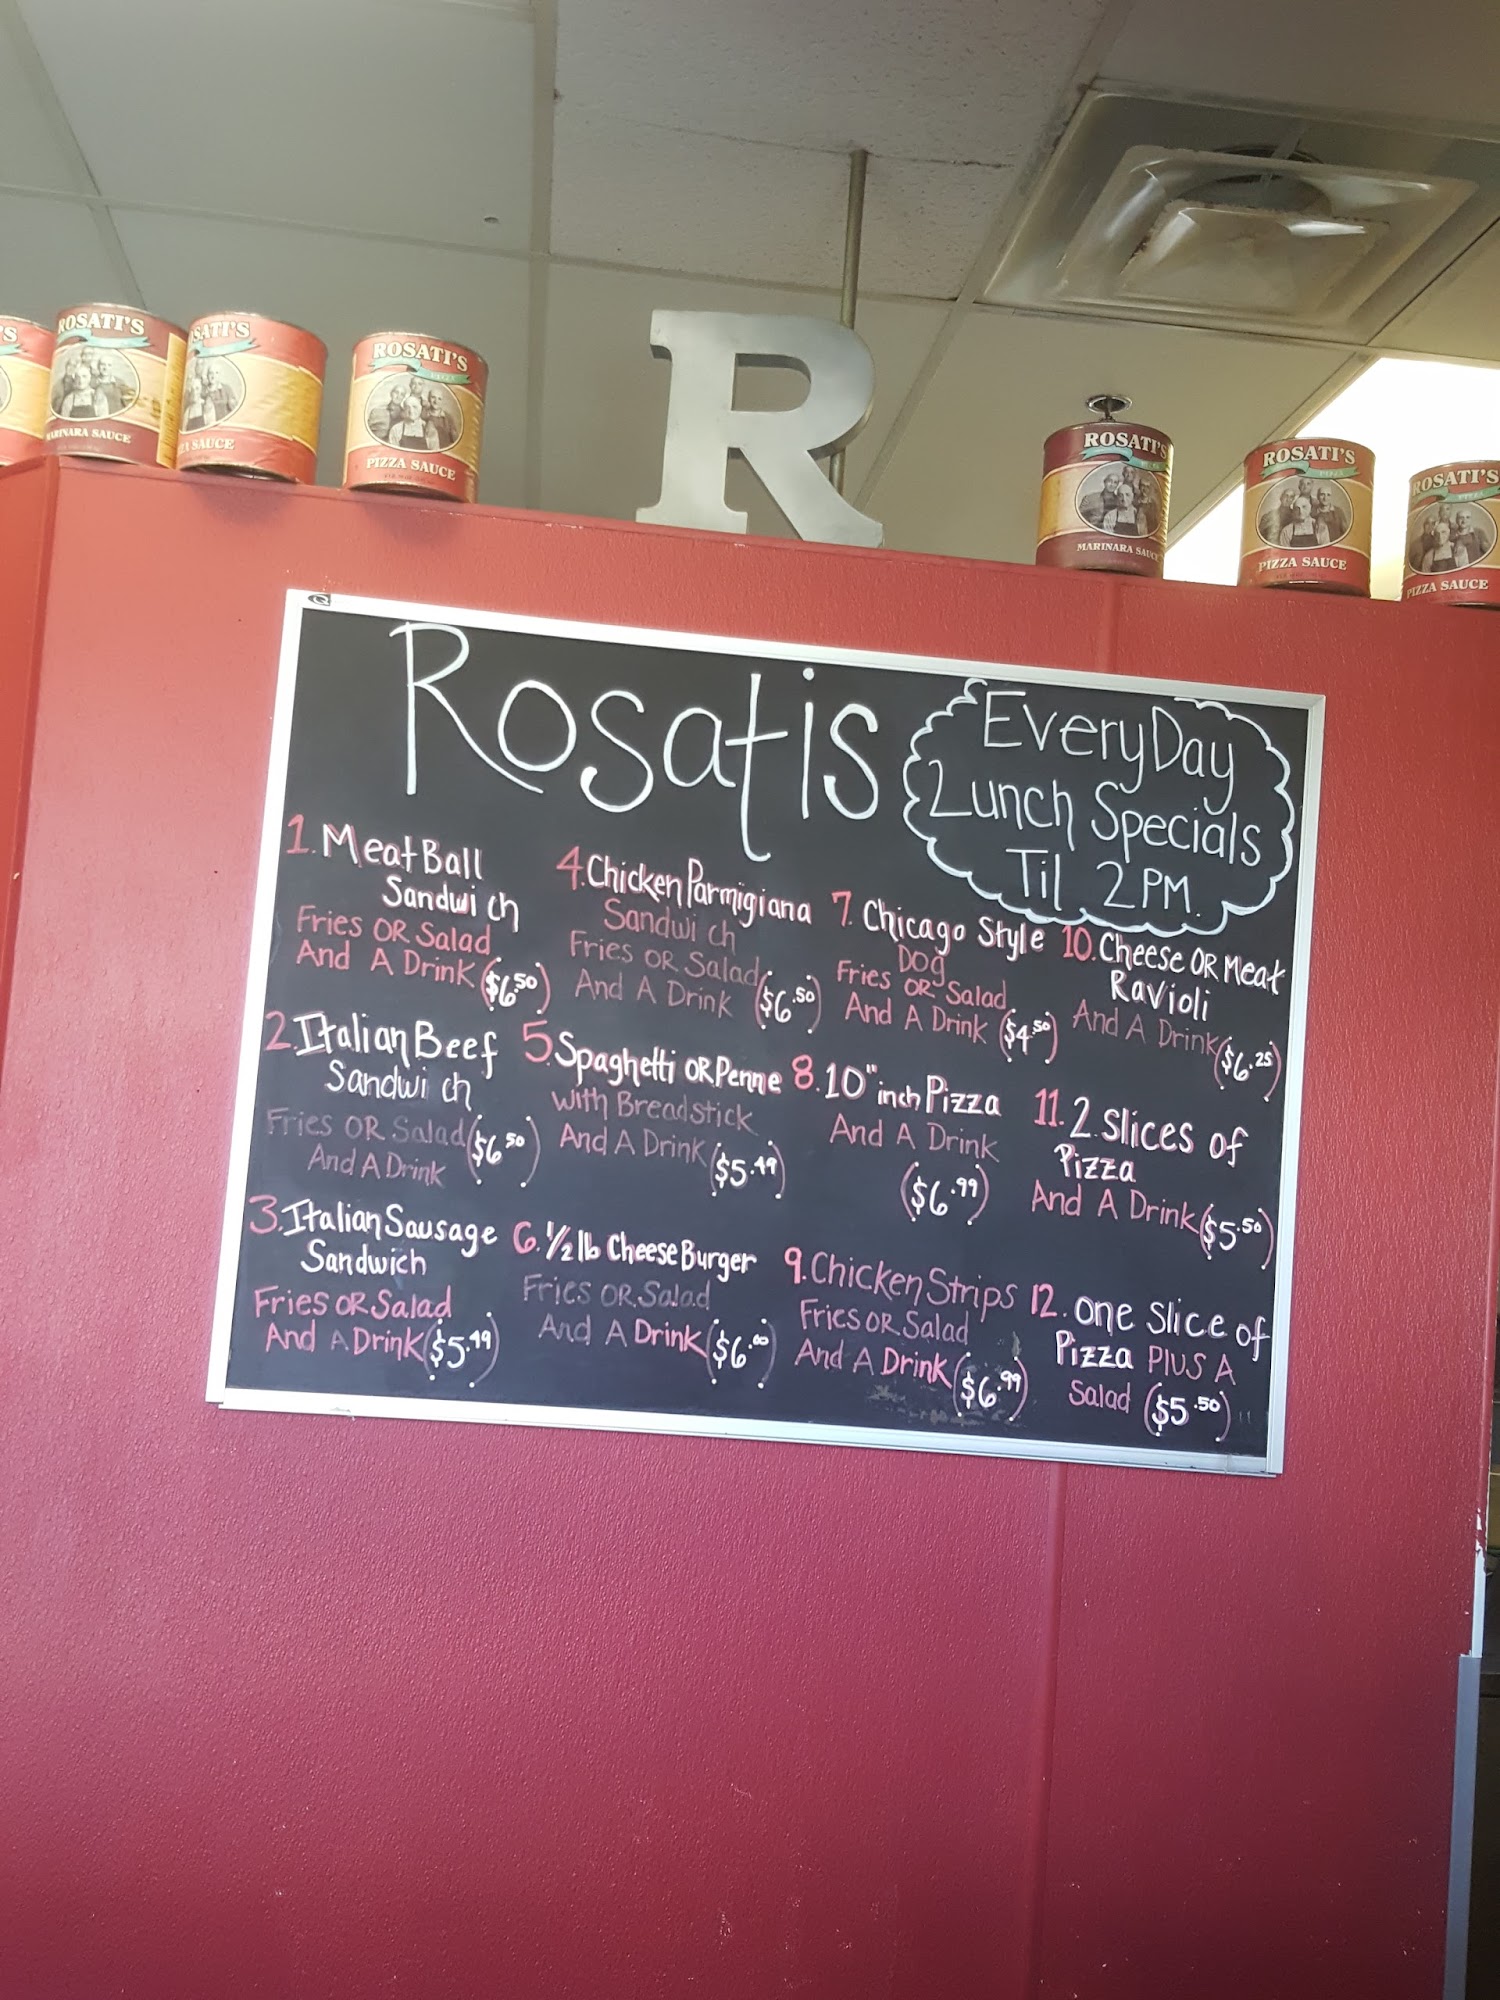 ROSATI'S
MARINARA SAUCE
SAUCE
ROSATI'S
PIZZA SAUCE
R
ROSATI'S
MARINARA SAUCE
ROSATI'S
PIZZA SAUCE
ROSATI'S
PIZZA SAUCE
Rosatis
EveryDay
Lunch Specials
Til 2PM.
1. MeatBall
Sandwich
Fries OR Salad
And A Drink ($6.50)
2. Italian Beef
Sandwich
Fries OR Salad ($6.50)
And A Drink
3. Italian Sausage
Sandwich
Fries OR Salad
And A Drink ($5.49)
4. Chicken Parmigiana
Sandwich
Fries OR Salad
And A Drink ($6.50)
5. Spaghetti OR Penne
With Breadstick
And A Drink ($5.49)
6. 1/2 lb CheeseBurger
Fries OR Salad
And A Drink ($6.00)
7. Chicago Style
Dog
Fries OR Salad
And A Drink ($4.50)
8. 10" inch Pizza
And A Drink
($6.99)
9. Chicken Strips
Fries OR Salad
And A Drink ($6.99)
10. Cheese OR Meat
Ravioli
And A Drink ($6.25)
11. 2 Slices of
Pizza
And A Drink ($5.50)
12. One Slice of
Pizza PLUS A
Salad ($5.50)